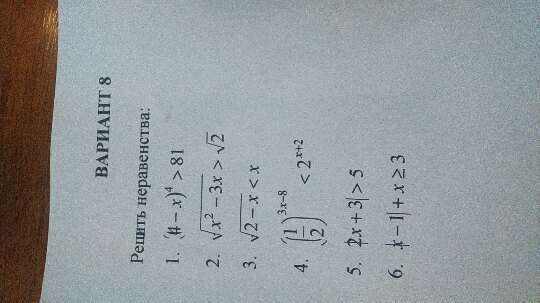 ВАРИАНТ 8
Решить неравенства:
1. (4 − x)⁴ > 81
2. √(x² − 3x) > √2
3. √(2 − x) < x
4. (1/2)^(3x−8) < 2^(x+2)
5. |2x + 3| > 5
6. |x − 1| + x ≥ 3